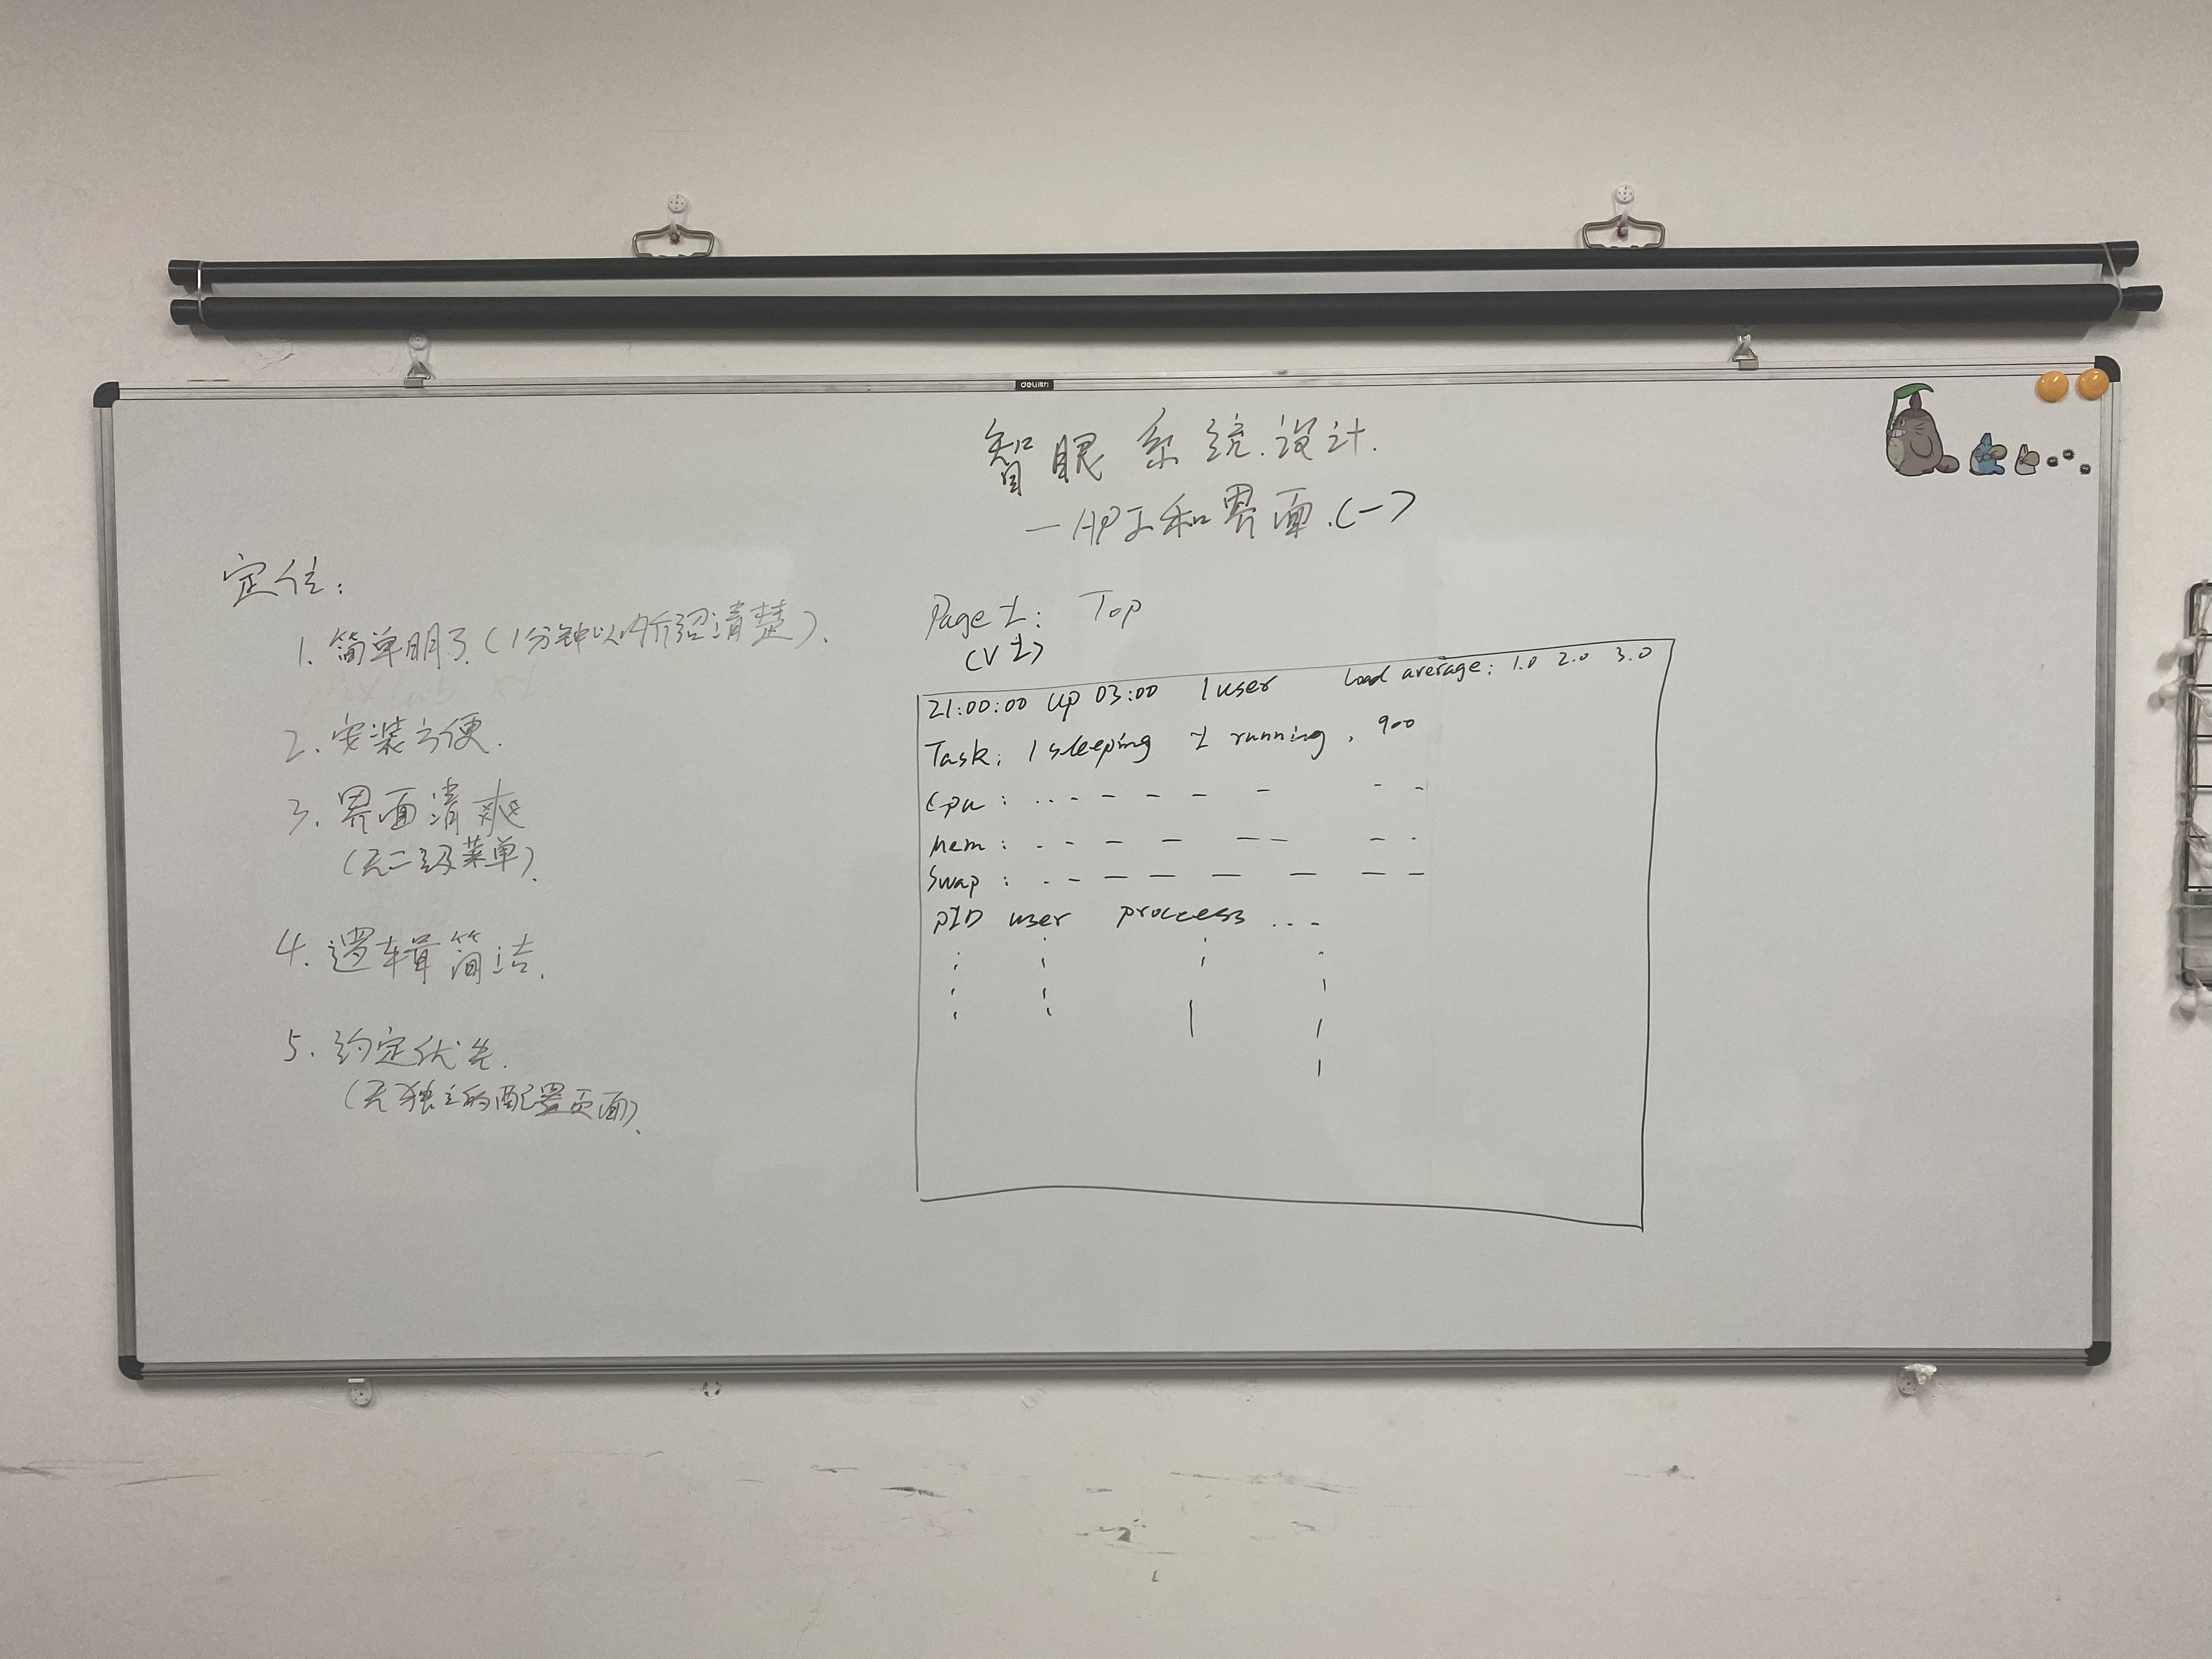 deli得力
智眼系统设计.
—API和界面.(一)
定位:
1. 简单明了(1分钟以内介绍清楚).
2. 安装方便.
3. 界面清爽
(无二级菜单).
4. 逻辑简洁.
5. 约定优先.
(无独立的配置页面).
Page 1: Top
(V1)
21:00:00 up 03:00 1 user Load average: 1.0 2.0 3.0
Task: 1 sleeping 1 running, 900
Cpu :
Mem :
Swap :
PID user proccess ...